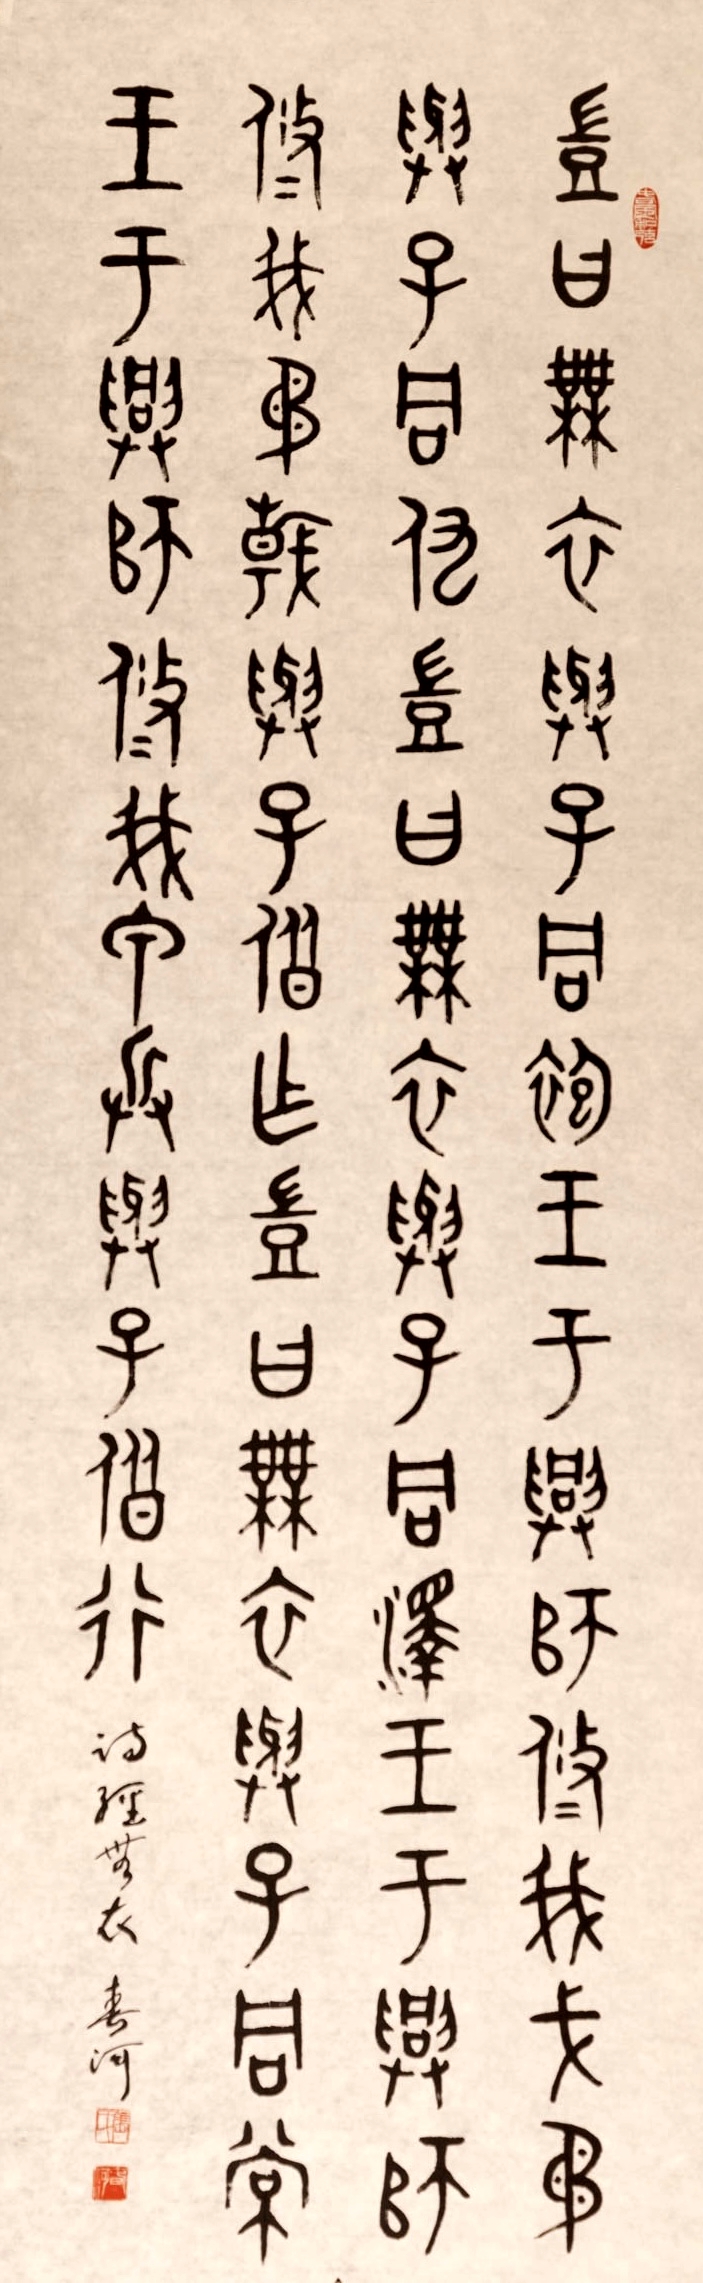 豈曰無衣與子同袍王于興師修我戈矛
與子同仇豈曰無衣與子同澤王于興師
修我矛戟與子偕作豈曰無衣與子同裳
王于興師修我甲兵與子偕行
詩經無衣 春河